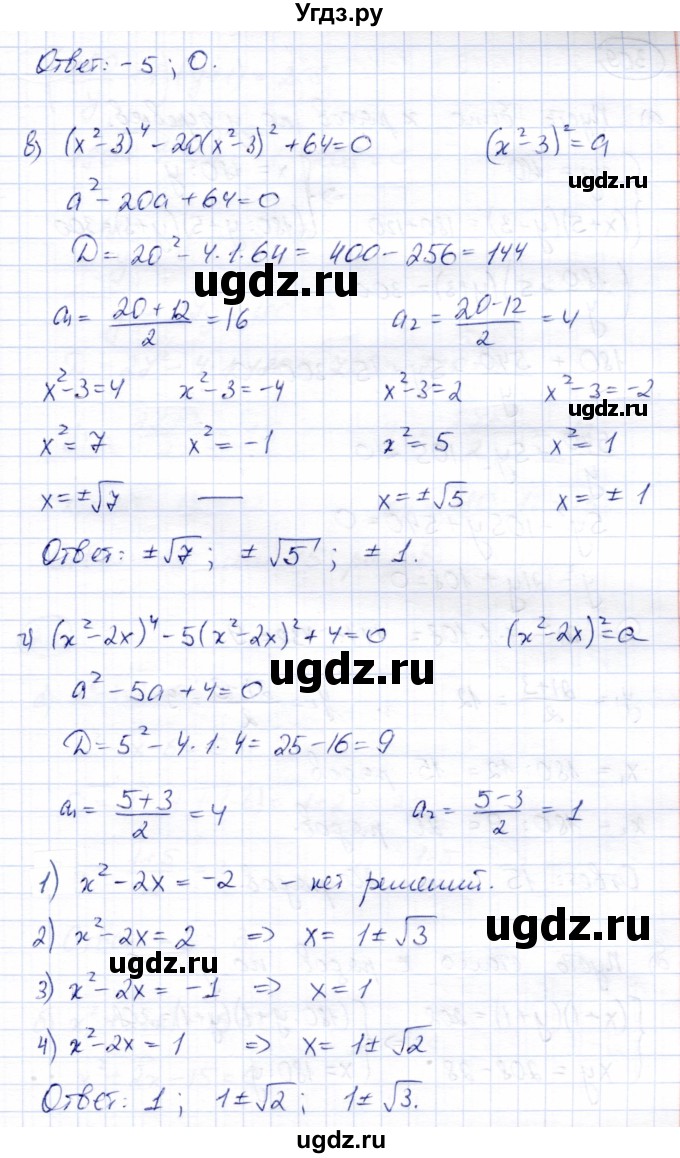 Угдз.ру
Ответ: -5 ; 0.
в) (x²-3)⁴ - 20(x²-3)² + 64 = 0     (x²-3)² = a
a² - 20a + 64 = 0
D = 20² - 4·1·64 = 400 - 256 = 144
ugdz.ru
ugdz.ru
a₁ = (20+12)/2 = 16     a₂ = (20-12)/2 = 4
x²-3=4     x²-3=-4     x²-3=2     x²-3=-2
ugdz.ru
x² = 7     x² = -1     x² = 5     x² = 1
x = ±√7     —     x = ±√5     x = ± 1
Ответ: ±√7 ; ±√5 ; ± 1.
г) (x²-2x)⁴ - 5(x²-2x)² + 4 = 0     (x²-2x)² = a
ugdz.ru
a² - 5a + 4 = 0
D = 5² - 4·1·4 = 25 - 16 = 9
a₁ = (5+3)/2 = 4     a₂ = (5-3)/2 = 1
1) x² - 2x = -2 - нет решений.
ugdz.ru
2) x² - 2x = 2 => x = 1±√3
ugdz.ru
3) x² - 2x = -1 => x = 1
4) x² - 2x = 1 => x = 1±√2
Ответ: 1 ; 1±√2 ; 1±√3.
ugdz.ru